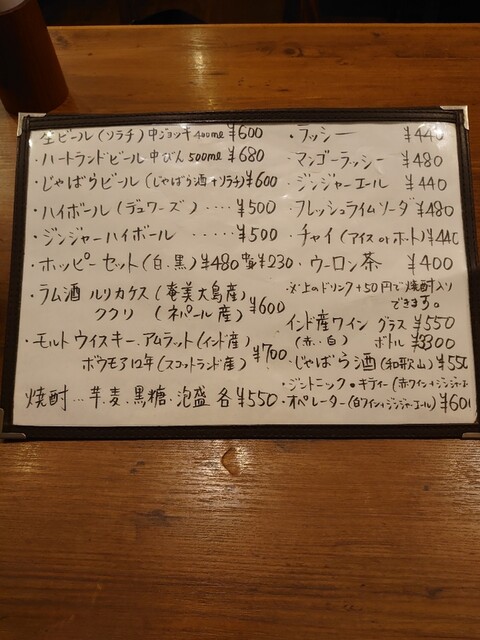 生ビール(ソラチ)中ジョッキ400ml ¥600
・ハートランドビール 中びん500ml ¥680
・じゃばらビール(じゃばら酒+ソラチ)¥600
・ハイボール(デュワーズ)‥‥¥500
・ジンジャーハイボール ‥‥‥¥500
・ホッピーセット(白.黒)¥480 ¥230
・ラム酒 ルリカケス(奄美大島産)
ククリ (ネパール産) ¥600
・モルトウイスキー.アムラット(インド産)
ボウモア12年(スコットランド産) ¥700
焼酎…芋.麦.黒糖.泡盛 各¥550
・ラッシー ¥440
・マンゴーラッシー ¥480
・ジンジャーエール ¥440
・フレッシュライムソーダ ¥480
・チャイ(アイス or ホット)¥440
・ウーロン茶 ¥400
※上のドリンク+50円で焼酎入り
できます。
インド産ワイン グラス ¥550
(赤.白) ボトル ¥3300
・じゃばら酒(和歌山)¥550
・ジントニック・キティー(赤ワイン+ジンジャーエ
・オペレーター(白ワイン+ジンジャーエール)¥600